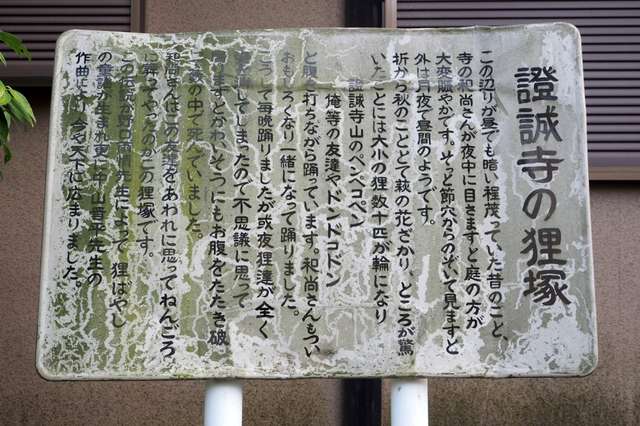 證誠寺の狸塚
この辺りが昼でも暗い程茂っていた昔のこと、
寺の和尚さんが夜中に目さますと庭の方が
大変賑やかです。そっと節穴からのぞいて見ますと
外は月夜で昼間のようです。
折から秋のこととて萩の花ざかり、ところが驚
いたことには大小の狸数十匹が輪になり
證誠寺山のペンコペン
俺等の友達やドンドコドン
と腹を打ちながら踊っています。和尚さんもつい
おもしろくなり一緒になって踊りました。
こうして毎晩踊りましたが或夜狸達が全く
姿を消してしまったので不思議に思って
居りますとかわいそうにもお腹をたたき破
の中で死んでいました。
和尚さんはこの友達をあわれに思ってねんごろ
に葬ってやったのがこの狸塚です。
この伝説が野口雨情先生によって狸ばやし
の童謡が生まれ更に中山晋平先生の
作曲により今や天下に広まりました。